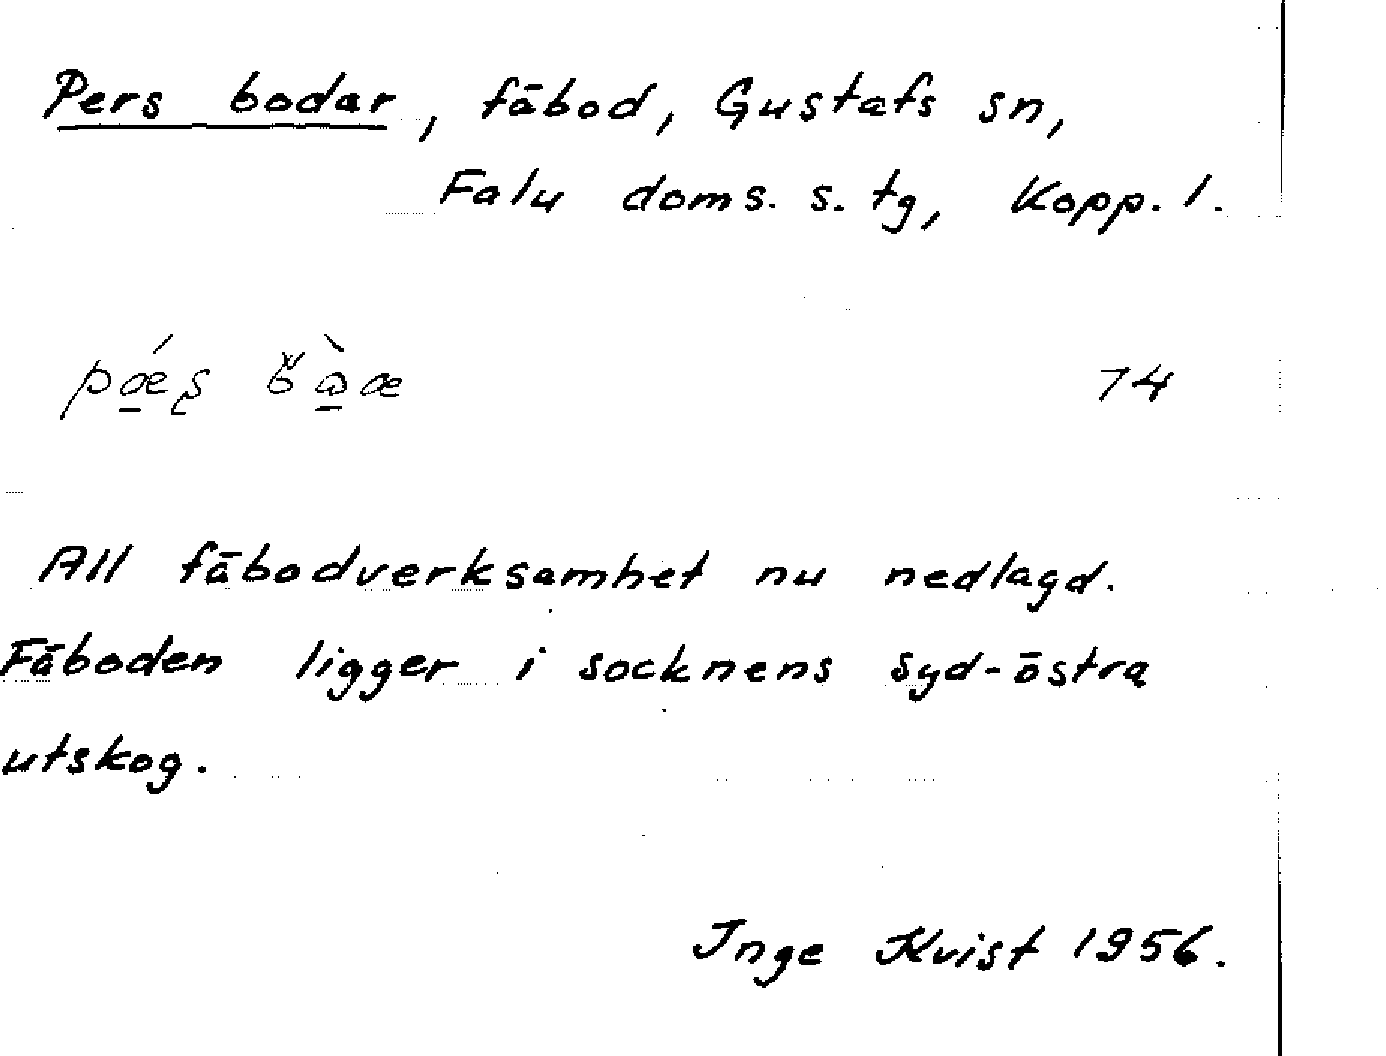 Pers bodar, fäbod, Gustafs sn,
Falu doms. s. tg, Kopp. l.
74
All fäbodverksamhet nu nedlagd.
Fäboden ligger i socknens syd-östra
utskog.
Inge Kvist 1956.